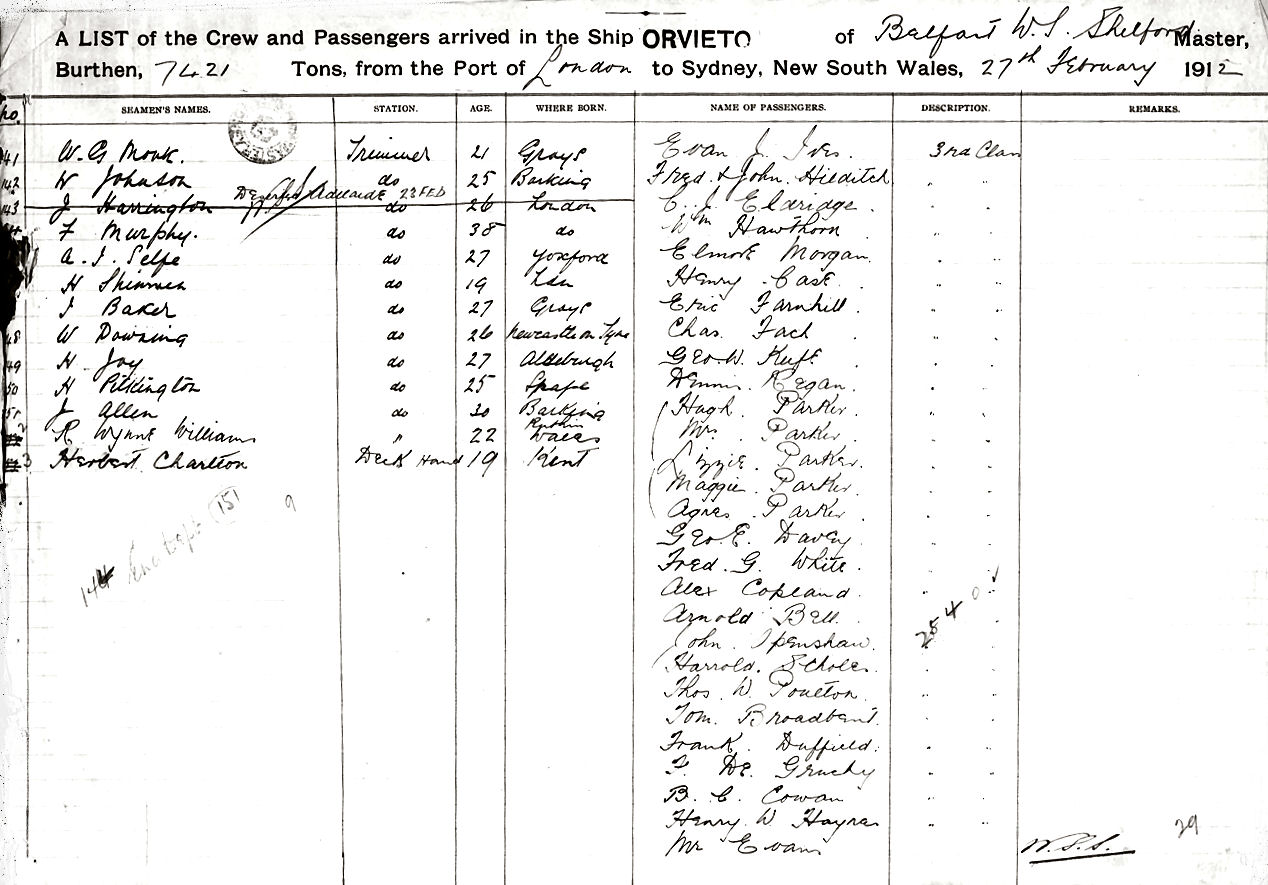 A LIST of the Crew and Passengers arrived in the Ship ORVIETO of Belfast W. S. Shelford Master,
Burthen, 7421 Tons, from the Port of London to Sydney, New South Wales, 27th February 1912
No. SEAMEN'S NAMES. STATION. AGE. WHERE BORN. NAME OF PASSENGERS. DESCRIPTION. REMARKS.
141 W. G Monk. Trimmer 21 Grays Evan J. Ives. 3rd Class
142 W Johnson do 25 Barking Fred. & John. Hilditch " "
Deserted Adelaide 23 FEB
143 J Harrington do 26 London C. J. Eldridge " "
F Murphy. do 38 do Wm Hawthorn " "
A. J. Selfe do 27 Yoxford Elmore Morgan. " "
H do 19 Henry Case " "
J Baker do 27 Grays Eric Farnhill " "
48 W Downing do 26 Newcastle on Tyne Chas. Fach " "
49 H Joy do 27 Aldeburgh Geo. W. " "
50 H Pilkington do 25 Dennis Regan. " "
51 J Allen do 30 Barking Hugh. Parker. " "
2 R Wynne Williams " 22 Ruthin Wales Mrs. Parker. " "
3 Herbert Charlton Deck Hand 19 Kent Lizzie. Parker. " "
Maggie. Parker. " "
Agnes. Parker. " "
Geo. E. Davey " "
Fred. G. White. " "
Alex Copeland. " "
Arnold Bell. " "
John. Openshaw. " "
Harrold. Scholes. " "
Thos. W. Poulton. " "
Tom. Broadbent. " "
Frank. Duffield. " "
F. De. Gruchy " "
B. C. Cowan " "
Henry W Haynes " "
Mr Evans W.S.S.
144 151
9
254
29